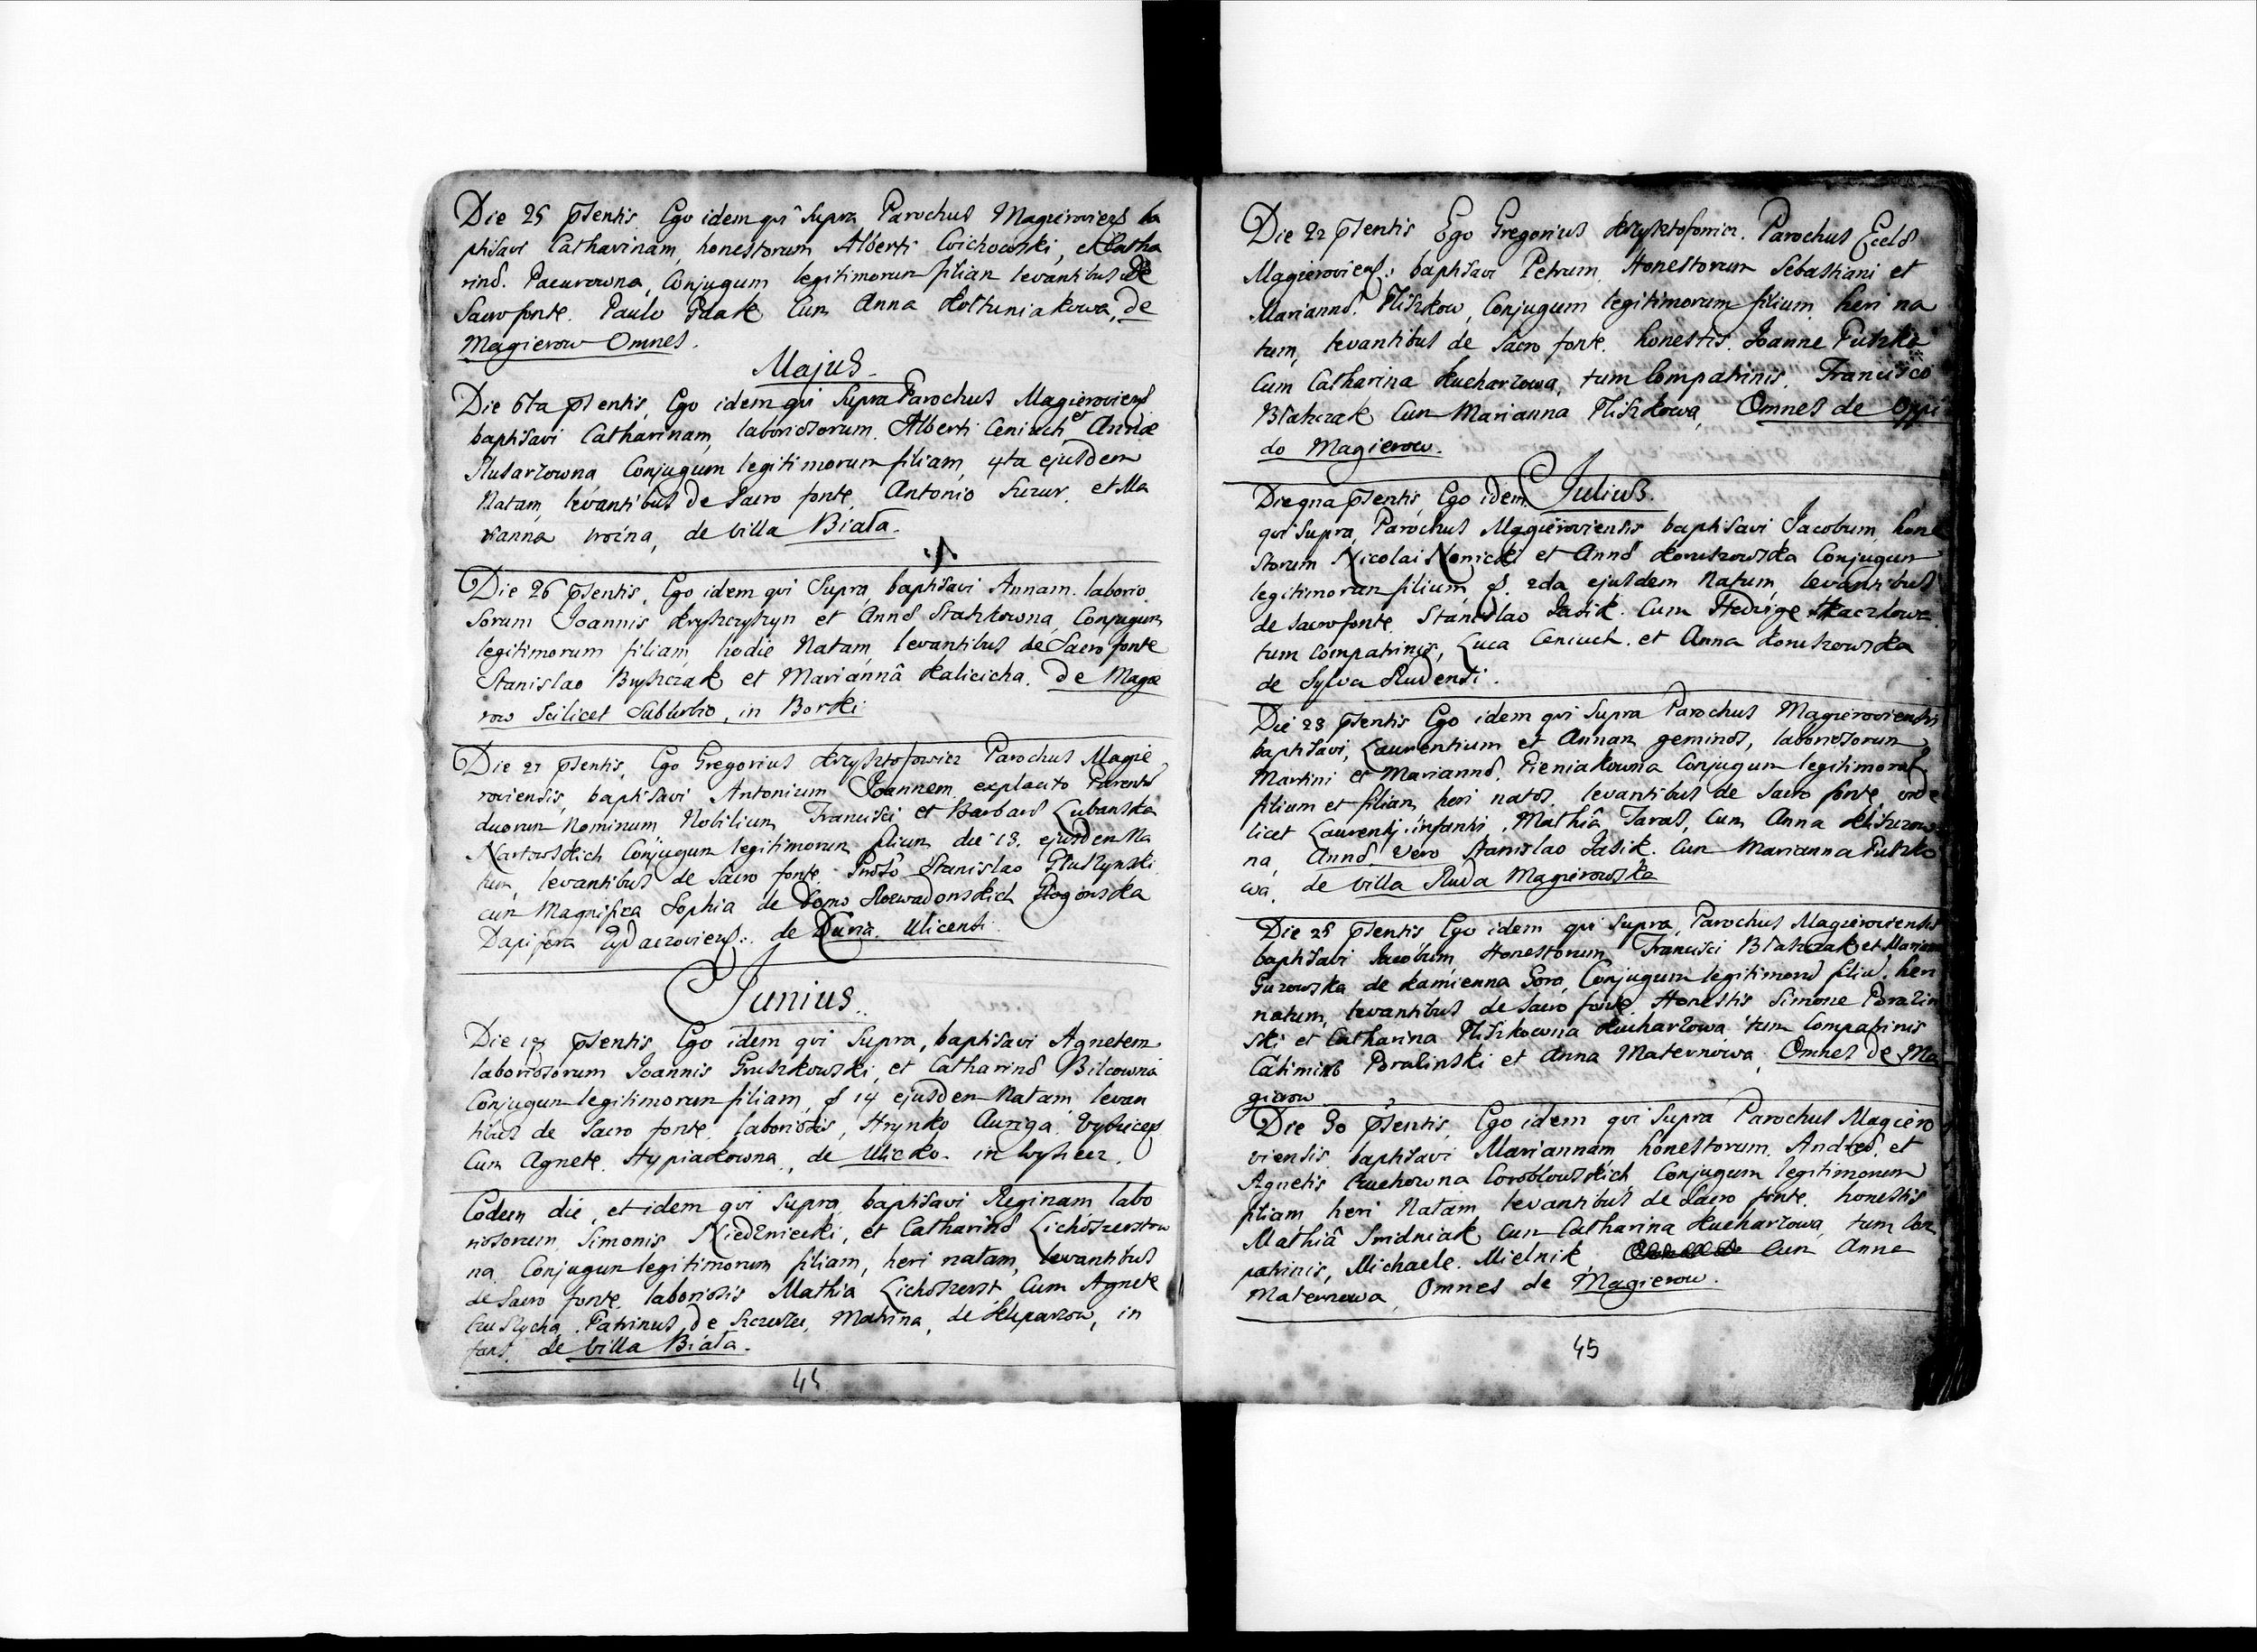 Die 25 pSentis Ego idem qui Supra Parochus Magieroviens ba
ptisavi Catharinam, honestorum Alberti Cvichowski, et Catha
rinæ Pacurowna, Conjugum legitimorum filiam levantibus de
Sacro fonte. Paulo Ptak Cum Anna Kołtuniakowa, de
Magierow Omnes.
Majus
Die 6ta pSentis, Ego idem qui Supra Parochus Magieroviens
baptisavi Catharinam, laboriosorum. Alberti Ceniuch et Annæ
Slusarzowna Conjugum legitimorum filiam, 4ta ejusdem
Natam, levantibus de Sacro fonte, Antonio et Ma
rianna de villa Biała.
Die 26 pSentis. Ego idem qui Supra, baptisavi Annam. laborio
sorum Joannis Kryszczyszyn et Annæ Conjugum
legitimorum filiam, hodie Natam, levantibus de Sacro fonte
Stanislao Bryszczak et Mariannâ Kalicicha. de Magie
row Scilicet Suburbio, in Borki
Die 27 pSentis, Ego Gregorius Krzysztofowicz Parochus Magie
roviensis, baptisavi Antonium Joannem ex placito Parentum
duorum Nominum, Nobilium, Francisci et Barbaræ Lubanska
Nartowskich Conjugum legitimorum filium die 13. ejusdem Na
tum, levantibus de Sacro fonte. Stanislao Głuszynski
cum Magnifica Sophia de Domo Rogonska
Dapifera de Curia Ulicensi.
Junius
Die 17 pSentis Ego idem qui Supra, baptisavi Agnetem
laboriosorum Joannis Gruszkowski, et Catharinæ Bilcowna
Conjugum legitimorum filiam, d 14 ejusdem Natam, levan
tibus de Sacro fonte. laboriosis, Hrynko Auriga
Cum Agnete. Hypiakowna, de Ulicko. in
Eodem die, et idem qui Supra, baptisavi Reginam, labo
riosorum Simonis Niedzniecki, et Catharinæ Lichoszerstow
na Conjugum legitimorum filiam, heri natam, levantibus
de Sacro fonte. laboriosis Mathia Lichoszerst, Cum Agnete
Patrinus, de Matrina, de in
fans. de villa Biała.
44
Die 22 pSentis Ego Gregorius Krzysztofowicz. Parochus Eccls
Magieroviens: baptisavi Petrum, Honestorum Sebastiani et
Mariannæ. Fliszkow, Conjugum legitimorum filium, heri na
tum, levantibus de Sacro fonte. honestis. Joanne Putzko
Cum Catharina Kucharzowa, tum Compatrinis. Francisco
Błahczak Cum Marianna Fliszkowa, Omnes de Oppi
do Magierow.
Julius.
Die qna pSentis, Ego idem
qui Supra, Parochus Magieroviensis baptisavi Jacobum, hone
storum Nicolai Nonicki et Annæ Koruszowska Conjugum
legitimorum filium, d. 2da ejusdem Natum, levantibus
de Sacro fonte. Stanislao Jasik. Cum Hedvige Tkaczkowa
tum Compatrinis, Luca Ceniuch. et Anna Koruszowska
de Sylva Rudensi.
Die 23 pSentis Ego idem qui Supra Parochus Magieroviensis
baptisavi, Laurentium et Annam geminos, laboriosorum
Martini et Mariannæ. Pieniakowna Conjugum legitimorum
filium et filiam, heri natos. levantibus de Sacro fonte, vide
licet Laurentij infantis. Mathiâ Taras, Cum Anna Kliszczow
na, Annæ Vero Stanislao Jasik. Cum Marianna Putzko
wa, de villa Ruda Magierowska
Die 25 pSentis Ego idem qui Supra, Parochus Magieroviensis
baptisavi Jacobum Honestorum, Francisci Błahczak et Mariannæ
Gurowska de Kamienna Gora, Conjugum legitimorũ filiũ. heri
natum, levantibus de Sacro fonte. Honestis Simone Poralin
ski et Catharina Fliszkowna Kucharzowa. tum Compatrinis
Casimiro Poralinski et Anna Maternowa, Omnes de Ma
gierow
Die 30 pSentis, Ego idem qui Supra Parochus Magiero
viensis baptisavi Mariannam, honestorum. Andreæ. et
Agnetis Conjugum legitimorum
filiam heri Natam levantibus de Sacro fonte. honestis
Mathiâ Sredniak Cum Catharina Kucharzowa, tum Com
patrinis, Michaele. Mielnik, Cum Anna
Maternowa, Omnes de Magierow.
45